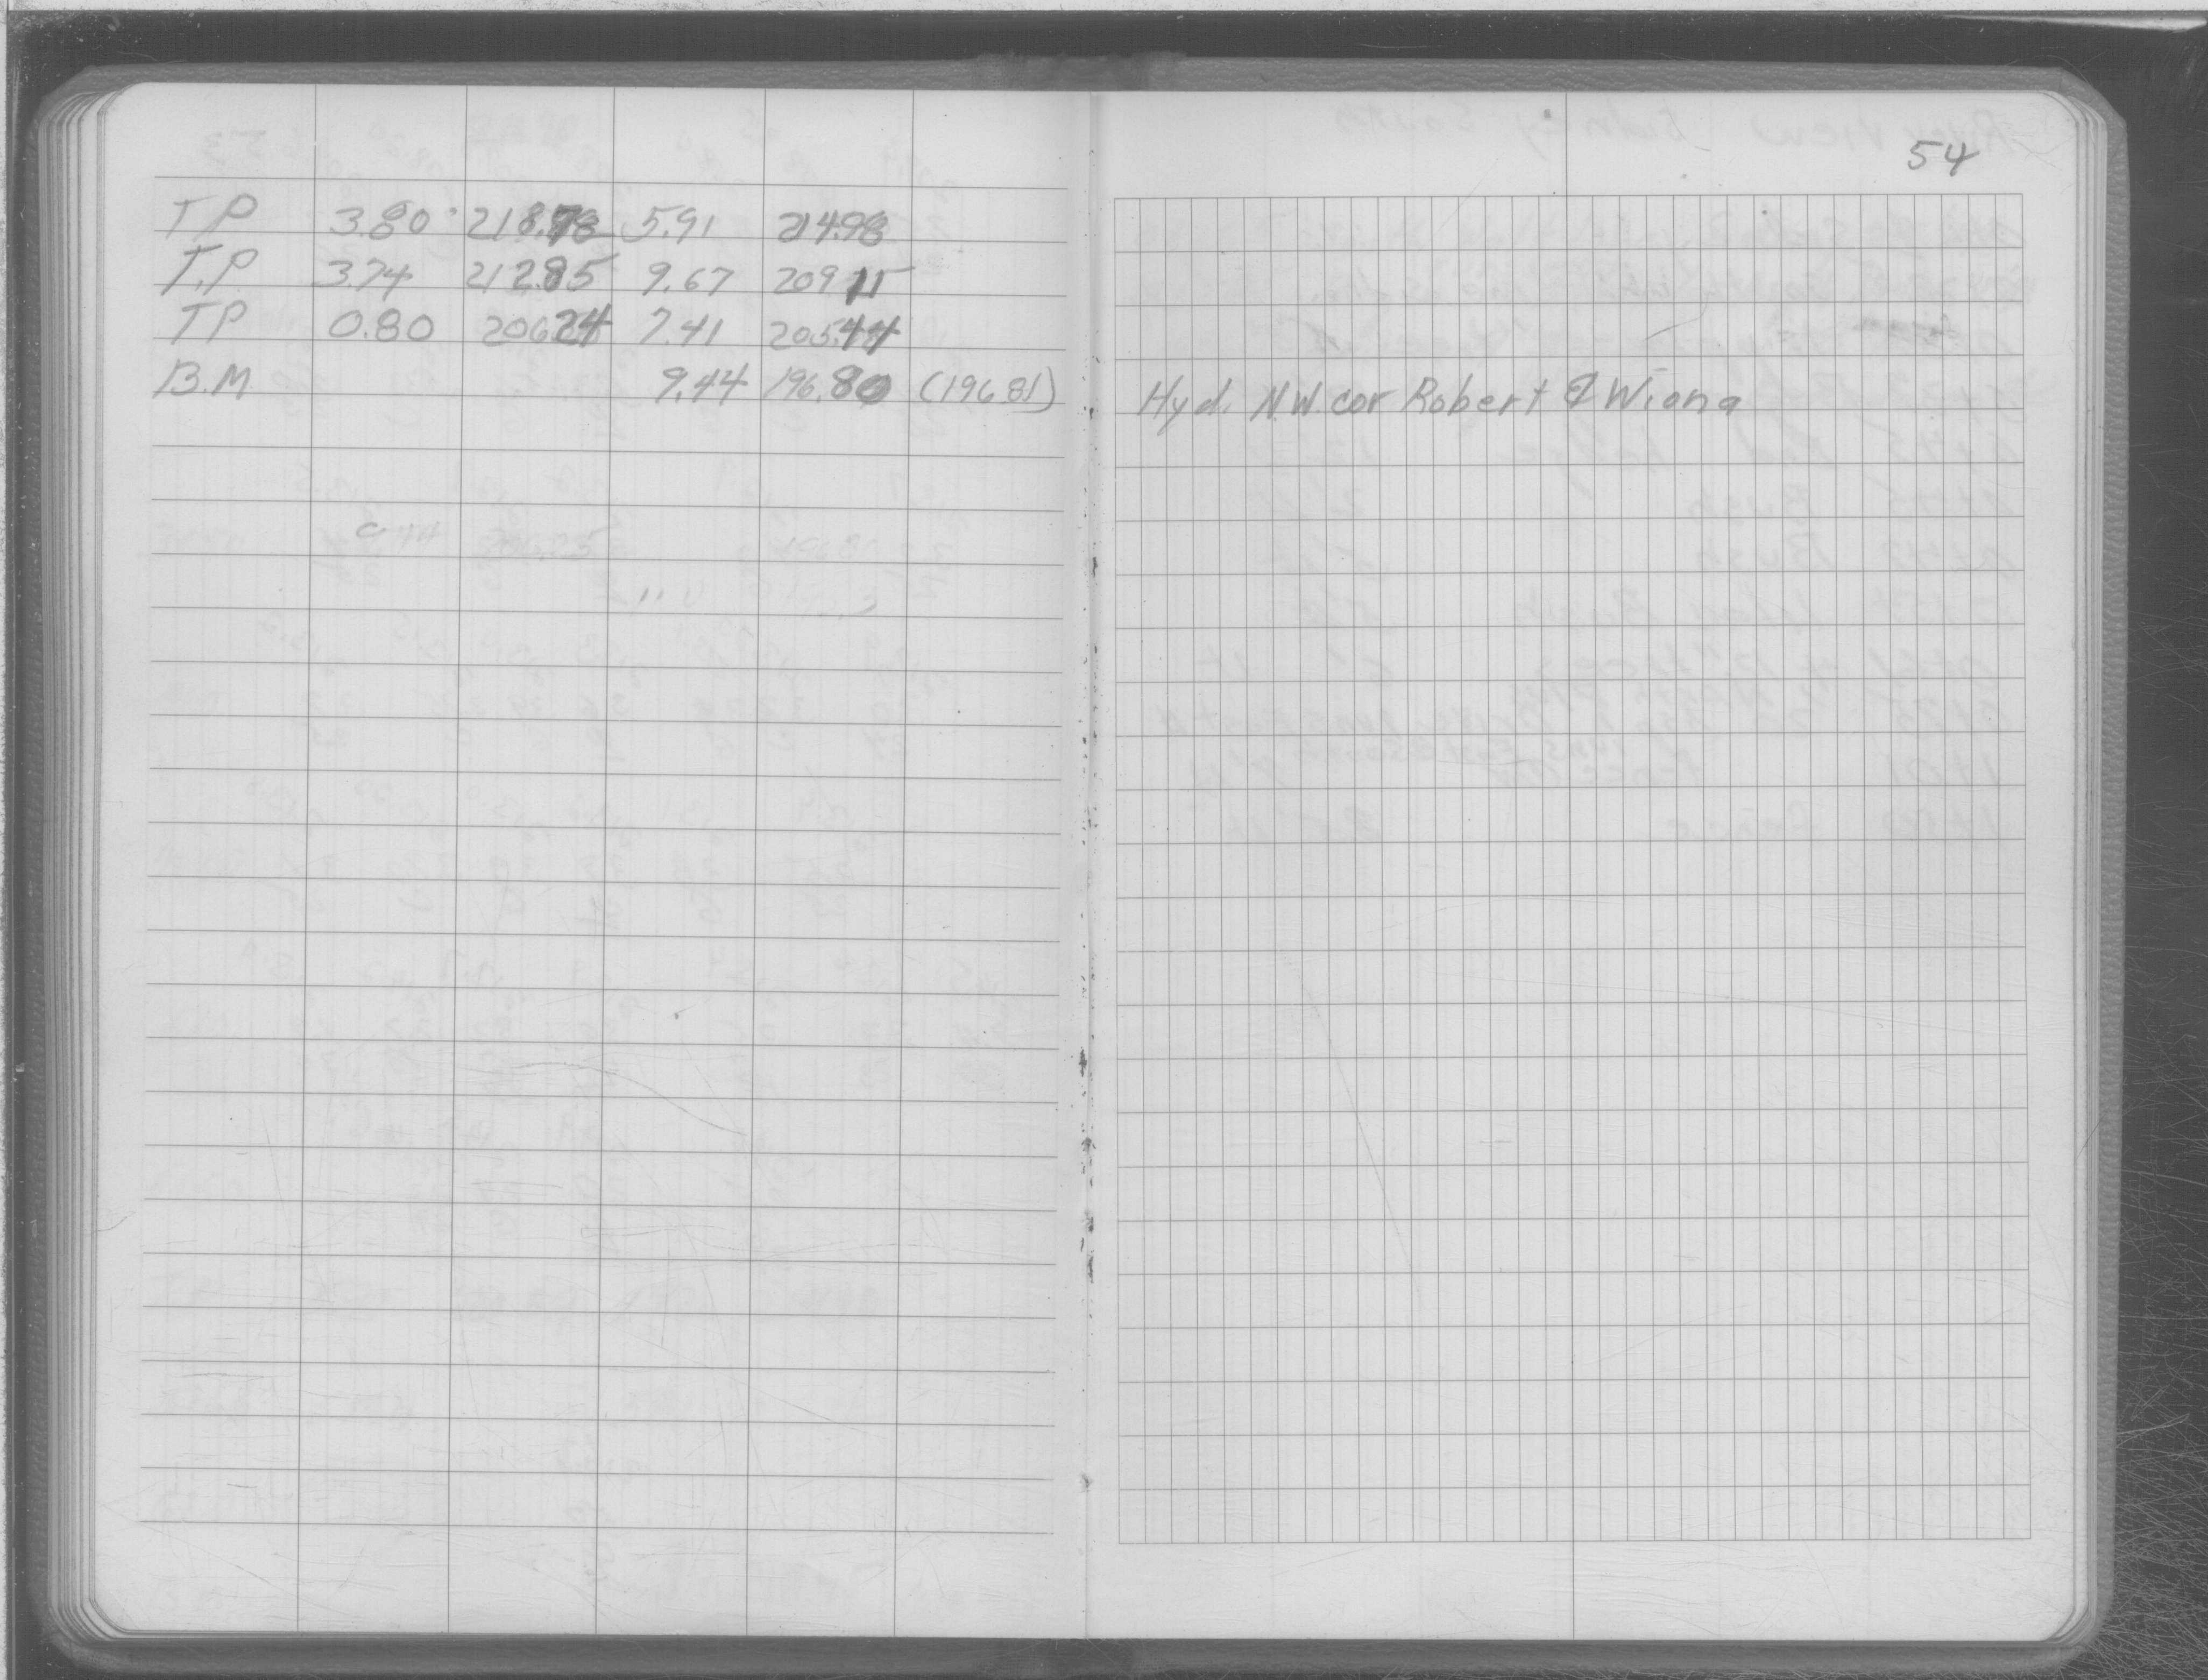 54
T P 3.80 218.78 5.91 214.98
T.P. 3.74 212.85 9.67 209 11
T P 0.80 206.24 7.41 205.44
B.M 9.44 196.80 (196.81) Hyd. N.W. cor Robert & Wiona